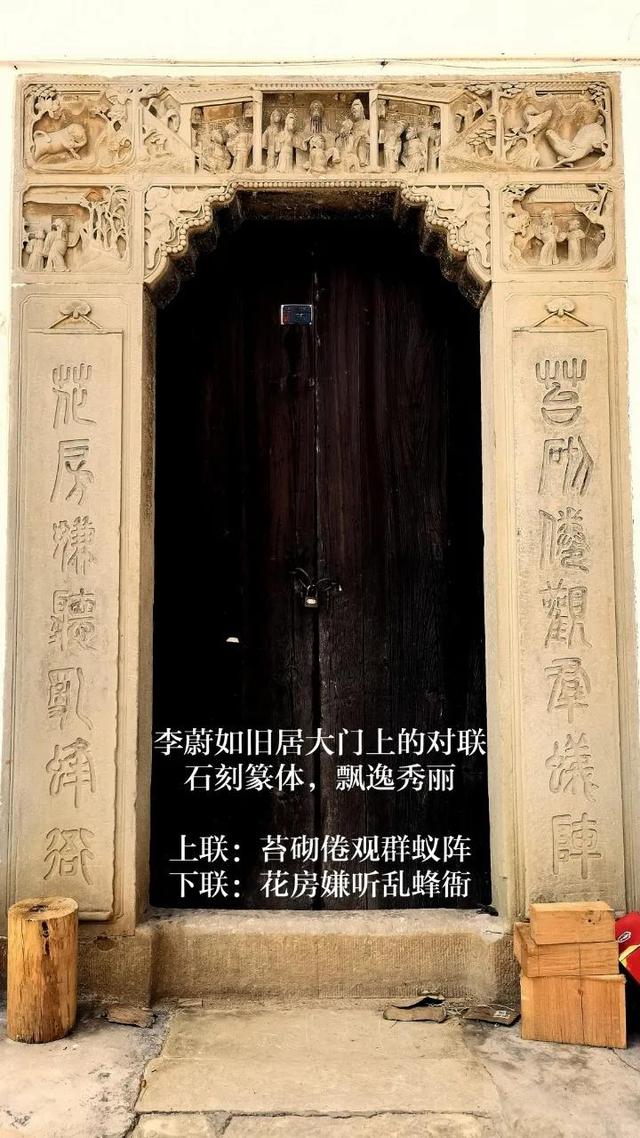 苔砌倦觀群蟻陣
花房嫌聽亂蜂衙
李蔚如旧居大门上的对联
石刻篆体，飘逸秀丽
上联：苔砌倦观群蚁阵
下联：花房嫌听乱蜂衙